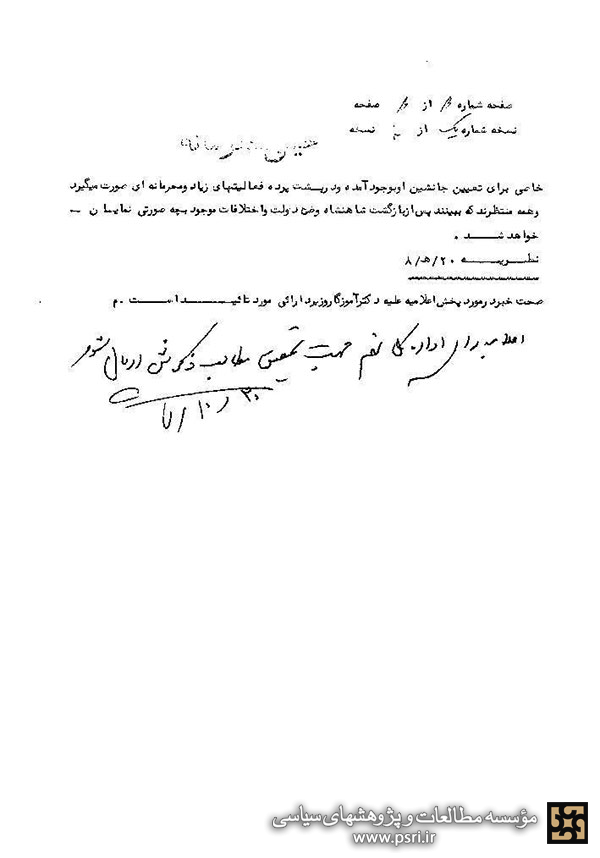 صفحه شماره ۲ از ۲ صفحه
نسخه شماره یک از نسخه
خاصی برای تعیین جانشین او بوجود آمده و در پشت پرده فعالیتهای زیاد و محرمانه ای صورت میگیرد
و همه منتظرند که ببینند پس از بازگشت شاهنشاه وضع دولت و اختلافات موجود بچه صورتی نمایان
خواهد شد .
نظریه ۲۰/ھ/۸
صحت خبر در مورد پخش اعلامیه علیه دکتر آموزگار وزیر دارائی مورد تائید است . م
برای اداره کل نهم جهت تحقیق مطالب ارسال شود
مؤسسه مطالعات و پژوهشهای سیاسی
www.psri.ir